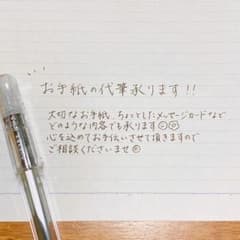 お手紙の代筆承ります!!
大切なお手紙、ちょっとしたメッセージカードなど
どのような内容でも承ります☺︎♡
心を込めてお手伝いさせて頂きますので
ご相談くださいませ☺︎